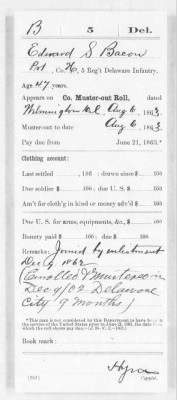 B 5 Del.
Edward S Bacon
Pvt, Co. H, 5 Reg't Delaware Infantry.
Age 47 years.
Appears on Co. Muster-out Roll, dated
Wilmington Del, Aug 6, 1863.
Muster-out to date Aug 6, 1863.
Pay due from June 21, 1863.*
Clothing account:
Last settled , 186 ; drawn since $ 100
Due soldier $ 100; due U. S. $ 100
Am't for cloth'g in kind or money adv'd $ 100
Due U. S. for arms, equipments, &c., $ 100
Bounty paid $ 100; due $ 100
Remarks: Joined by enlistment
Dec 9 1862
(Enrolled & Mustered in
Dec 9/62 Delaware
City 9 months)
*This man is not considered by this Department to have been in
the service of the United States prior to June 21, 1863, the date from
which the roll shows pay due.
Book mark:
Copyist.